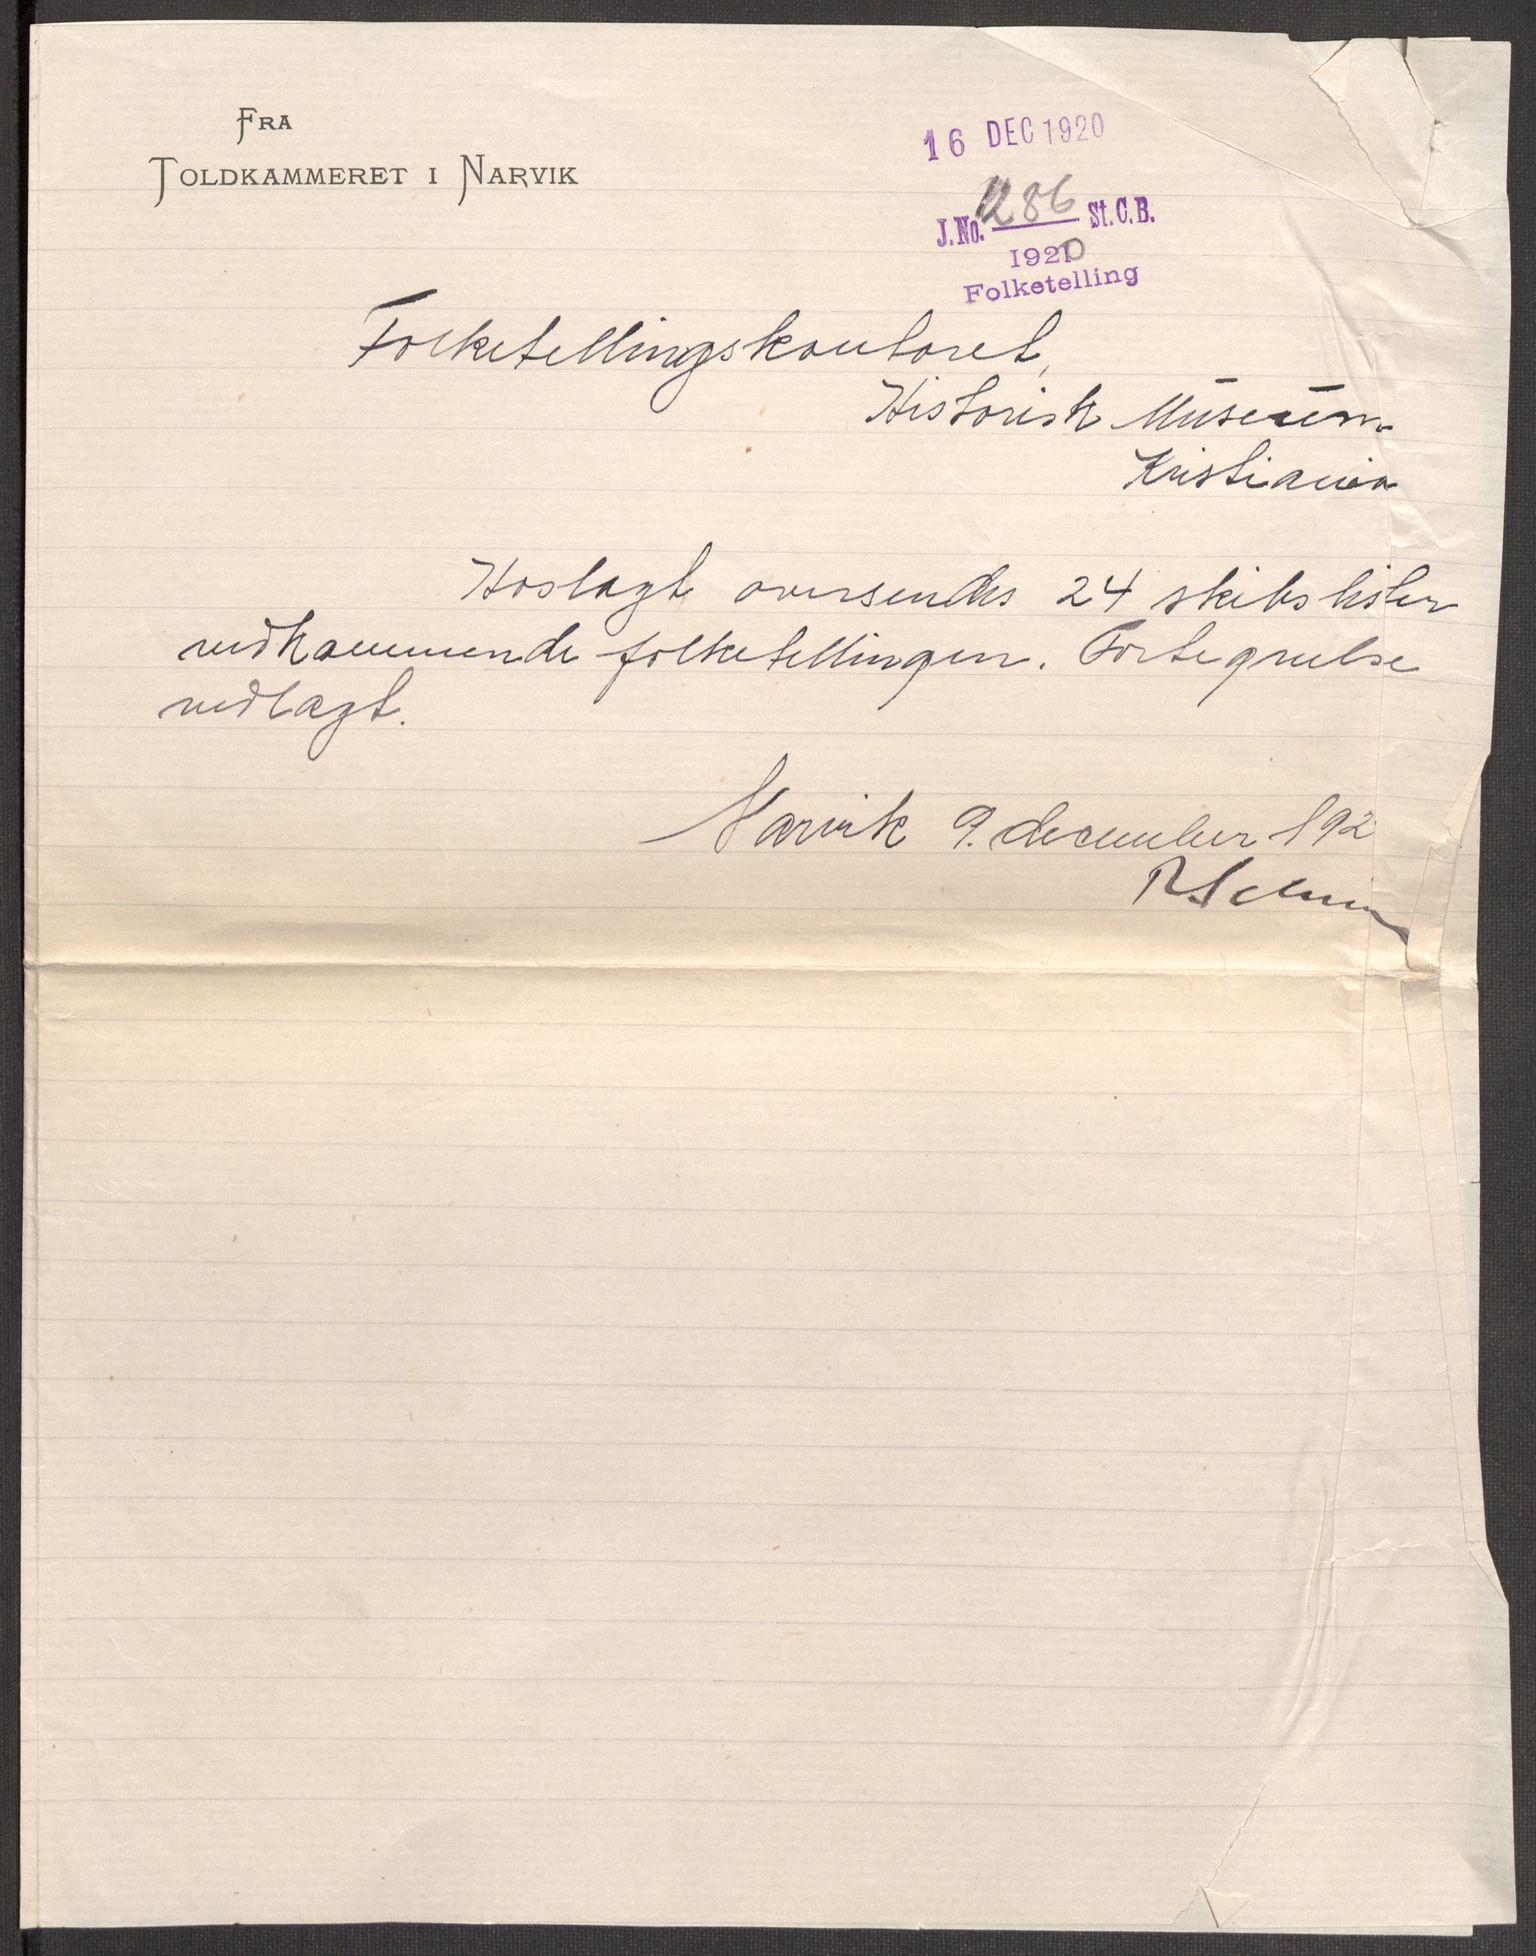 FRA
TOLDKAMMERET I NARVIK
16 DEC 1920
J.No. 1286 St.C.B.
1920
Folketelling
Folketellingskontoret,
Historisk Museum
Kristiania
Hoslagt oversendes 24 skibslister
vedkommende folketellingen. Fortegnelse
vedlagt.
Narvik 9. december 192